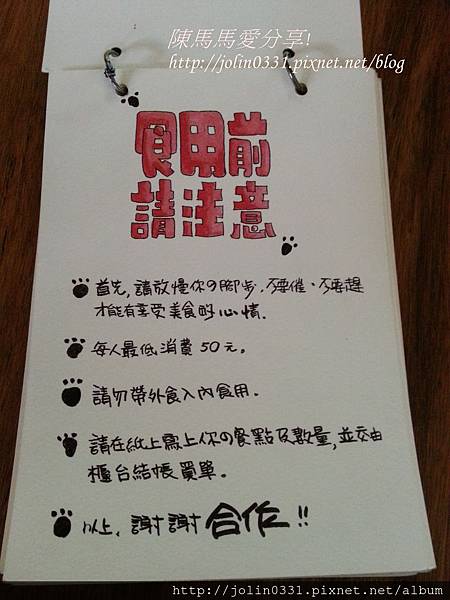 陳馬馬愛分享!
http://jolin0331.pixnet.net/blog
食用前
請注意
首先,請放慢你の腳步.不要催、不要趕
才能有享受美食的心情.
每人最低消費50元。
請勿帶外食入內食用.
請在紙上寫上你の餐點及數量,並交由
櫃台結帳買單。
以上.謝謝合作!!
http://jolin0331.pixnet.net/album